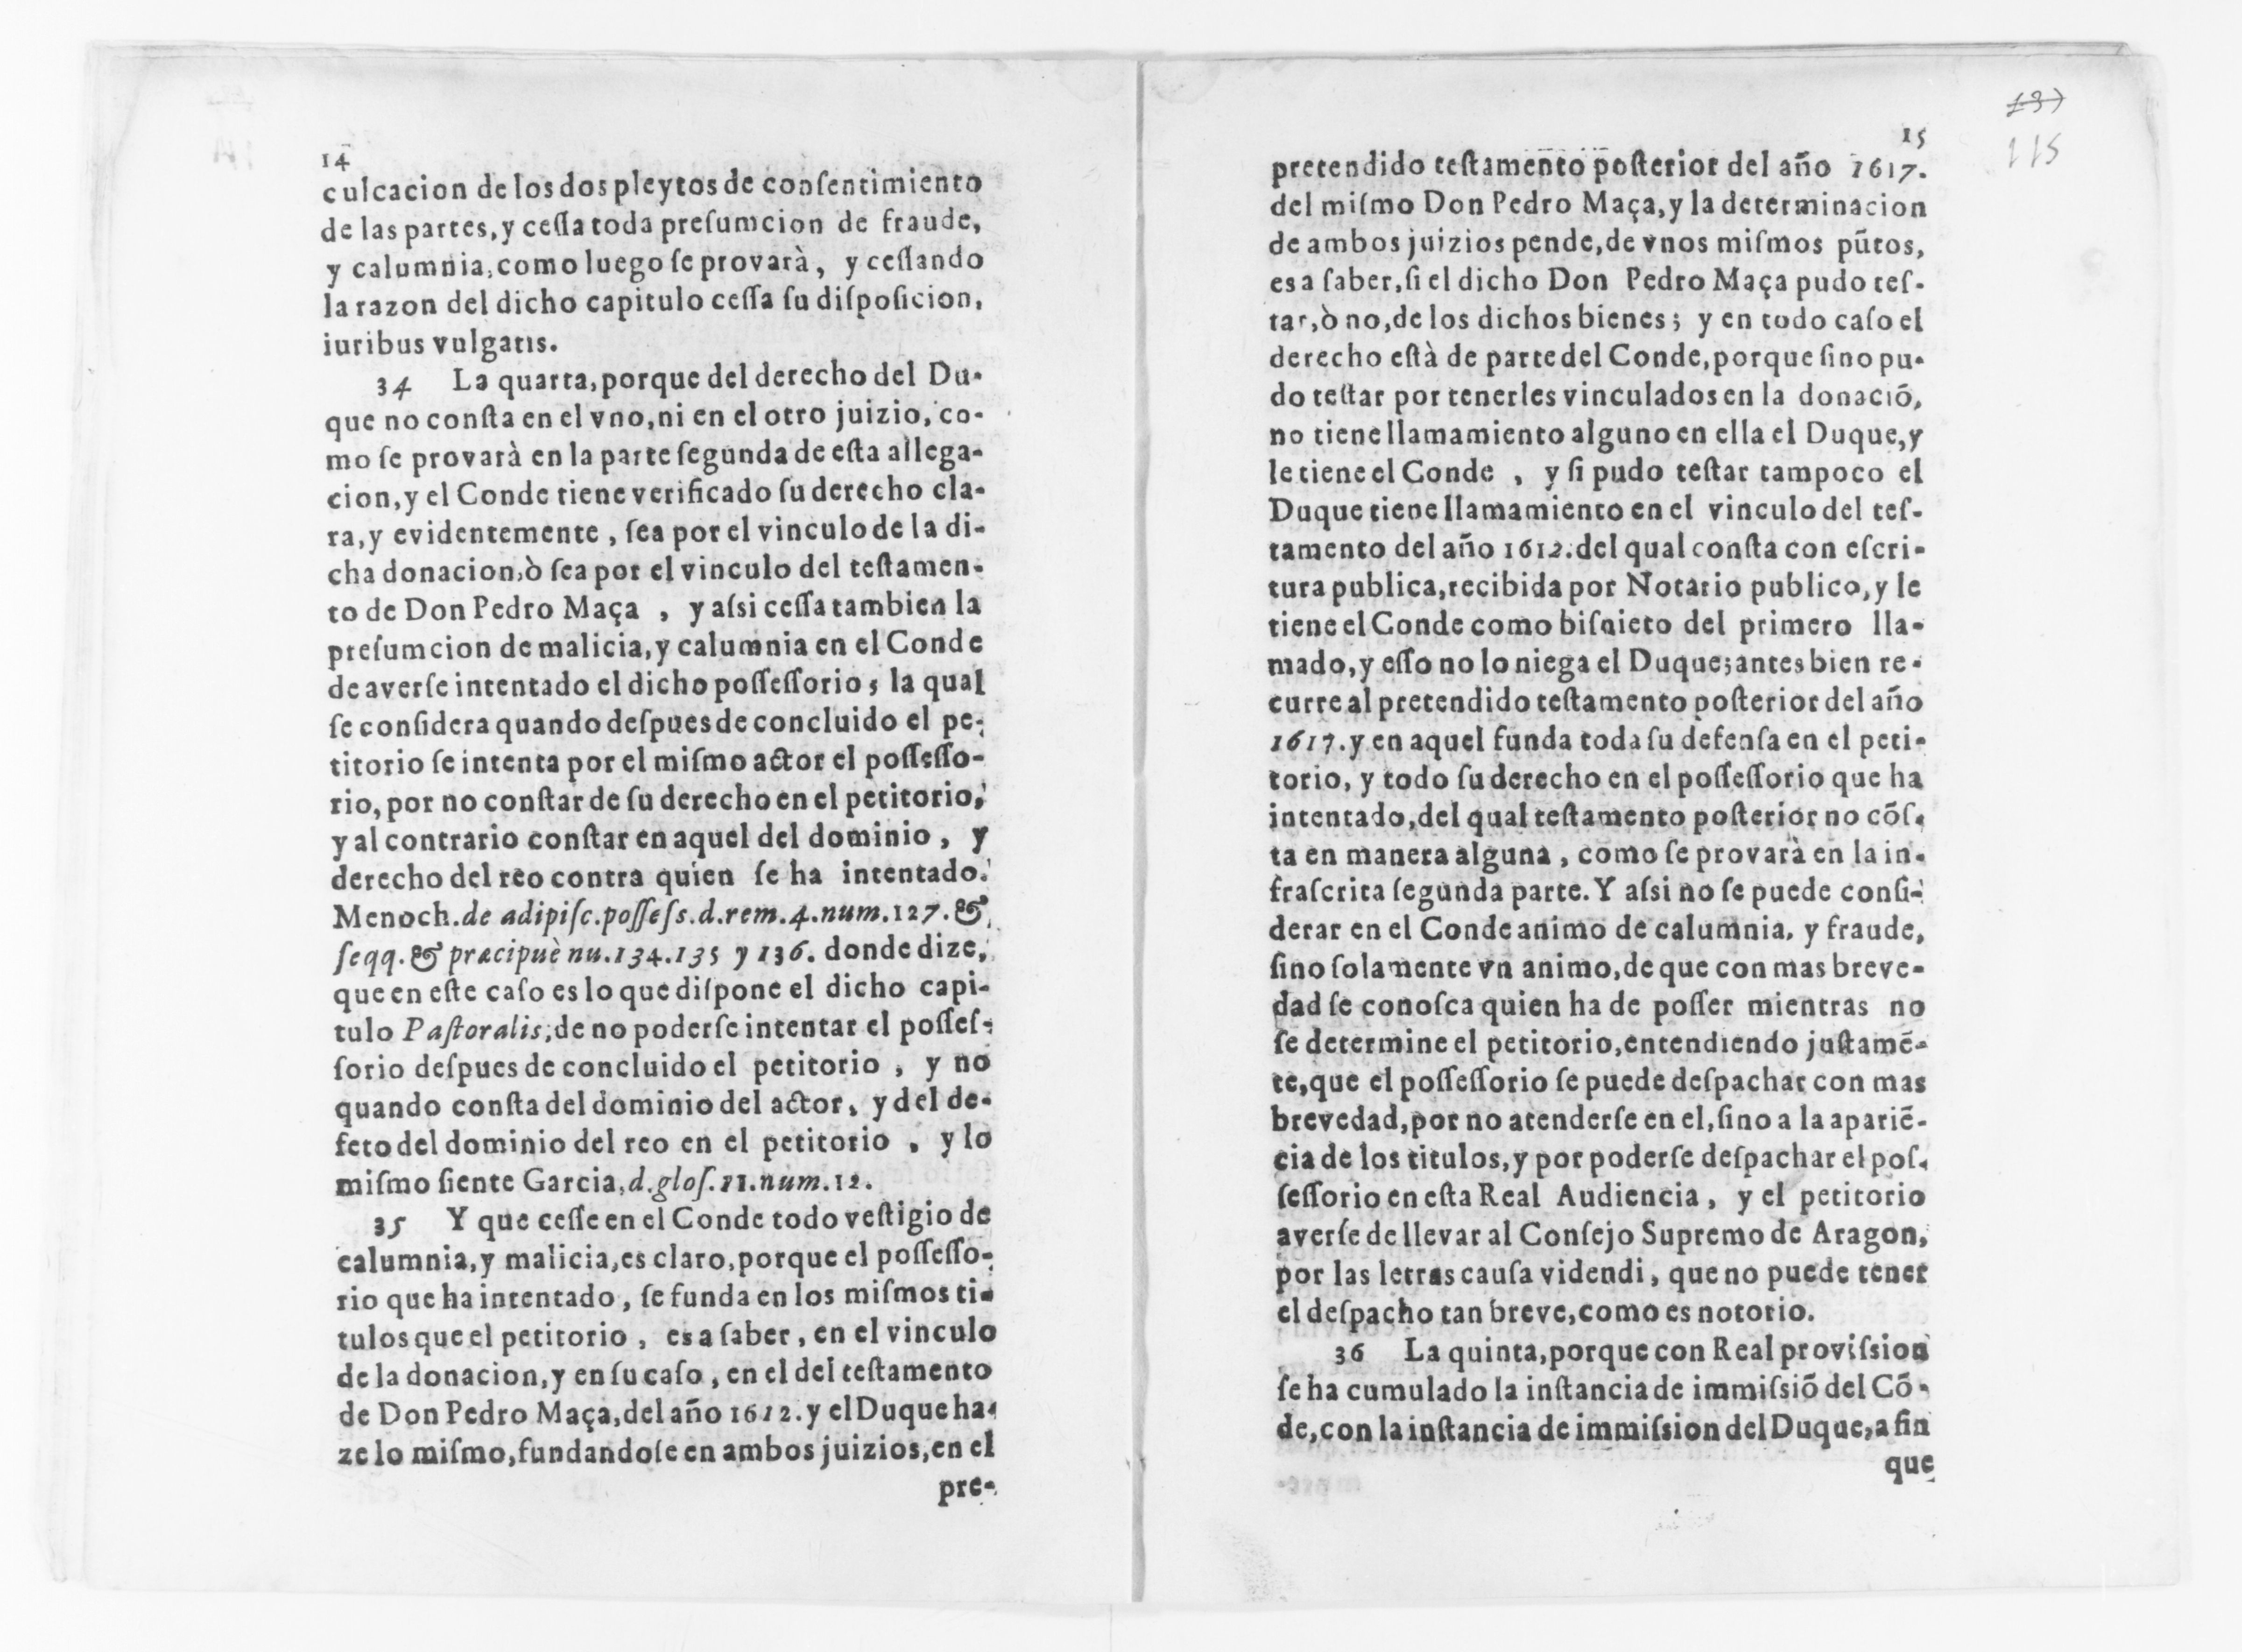 14
culcacion de los dos pleytos de conſentimiento
de las partes, y ceſſa toda preſumcion de fraude,
y calumnia, como luego ſe provarà, y ceſſando
la razon del dicho capitulo ceſſa ſu diſpoſicion,
iuribus vulgatis.
34 La quarta, porque del derecho del Du-
que no conſta en el vno, ni en el otro juizio, co-
mo ſe provarà en la parte ſegunda de eſta allega-
cion, y el Conde tiene verificado ſu derecho cla-
ra, y evidentemente, ſea por el vinculo de la di-
cha donacion, ò ſea por el vinculo del teſtamen-
to de Don Pedro Maça, y aſsi ceſſa tambien la
preſumcion de malicia, y calumnia en el Conde
de averſe intentado el dicho poſſeſſorio; la qual
ſe conſidera quando deſpues de concluido el pe-
titorio ſe intenta por el miſmo actor el poſſeſſo-
rio, por no conſtar de ſu derecho en el petitorio,
y al contrario conſtar en aquel del dominio, y
derecho del reo contra quien ſe ha intentado.
Menoch. de adipiſc. poſſeſs. d. rem. 4. num. 127. &
ſeqq. & præcipuè nu. 134. 135 y 136. donde dize,
que en eſte caſo es lo que diſpone el dicho capi-
tulo Paſtoralis, de no poderſe intentar el poſſeſ-
ſorio deſpues de concluido el petitorio, y no
quando conſta del dominio del actor, y del de-
feto del dominio del reo en el petitorio, y lo
miſmo ſiente Garcia, d. gloſ. 11. num. 12.
35 Y que ceſſe en el Conde todo veſtigio de
calumnia, y malicia, es claro, porque el poſſeſſo-
rio que ha intentado, ſe funda en los miſmos ti-
tulos que el petitorio, es a ſaber, en el vinculo
de la donacion, y en ſu caſo, en el del teſtamento
de Don Pedro Maça, del año 1612. y el Duque ha-
ze lo miſmo, fundandoſe en ambos juizios, en el
pre-
(3)
115
15
pretendido teſtamento poſterior del año 1617.
del miſmo Don Pedro Maça, y la determinacion
de ambos juizios pende, de vnos miſmos pũtos,
es a ſaber, ſi el dicho Don Pedro Maça pudo teſ-
tar, ò no, de los dichos bienes; y en todo caſo el
derecho eſtà de parte del Conde, porque ſi no pu-
do teſtar por tenerles vinculados en la donaciõ,
no tiene llamamiento alguno en ella el Duque, y
le tiene el Conde, y ſi pudo teſtar tampoco el
Duque tiene llamamiento en el vinculo del teſ-
tamento del año 1612. del qual conſta con eſcri-
tura publica, recibida por Notario publico, y le
tiene el Conde como biſnieto del primero lla-
mado, y eſſo no lo niega el Duque; antes bien re-
curre al pretendido teſtamento poſterior del año
1617. y en aquel funda toda ſu defenſa en el peti-
torio, y todo ſu derecho en el poſſeſſorio que ha
intentado, del qual teſtamento poſterior no cõſ-
ta en manera alguna, como ſe provarà en la in-
fraſcrita ſegunda parte. Y aſsi no ſe puede conſi-
derar en el Conde animo de calumnia, y fraude,
ſino ſolamente vn animo, de que con mas breve-
dad ſe conoſca quien ha de poſſer mientras no
ſe determine el petitorio, entendiendo juſtamẽ-
te, que el poſſeſſorio ſe puede deſpachar con mas
brevedad, por no atenderſe en el, ſino a la apariẽ-
cia de los titulos, y por poderſe deſpachar el poſ-
ſeſſorio en eſta Real Audiencia, y el petitorio
averſe de llevar al Conſejo Supremo de Aragon,
por las letras cauſa videndi, que no puede tener
el deſpacho tan breve, como es notorio.
36 La quinta, porque con Real proviſsion
ſe ha cumulado la inſtancia de immiſsiõ del Cõ-
de, con la inſtancia de immiſsion del Duque, a fin
que